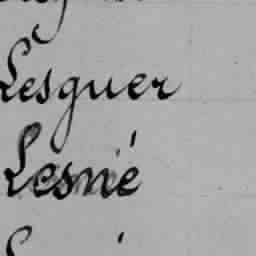 Lesguer
Lesné